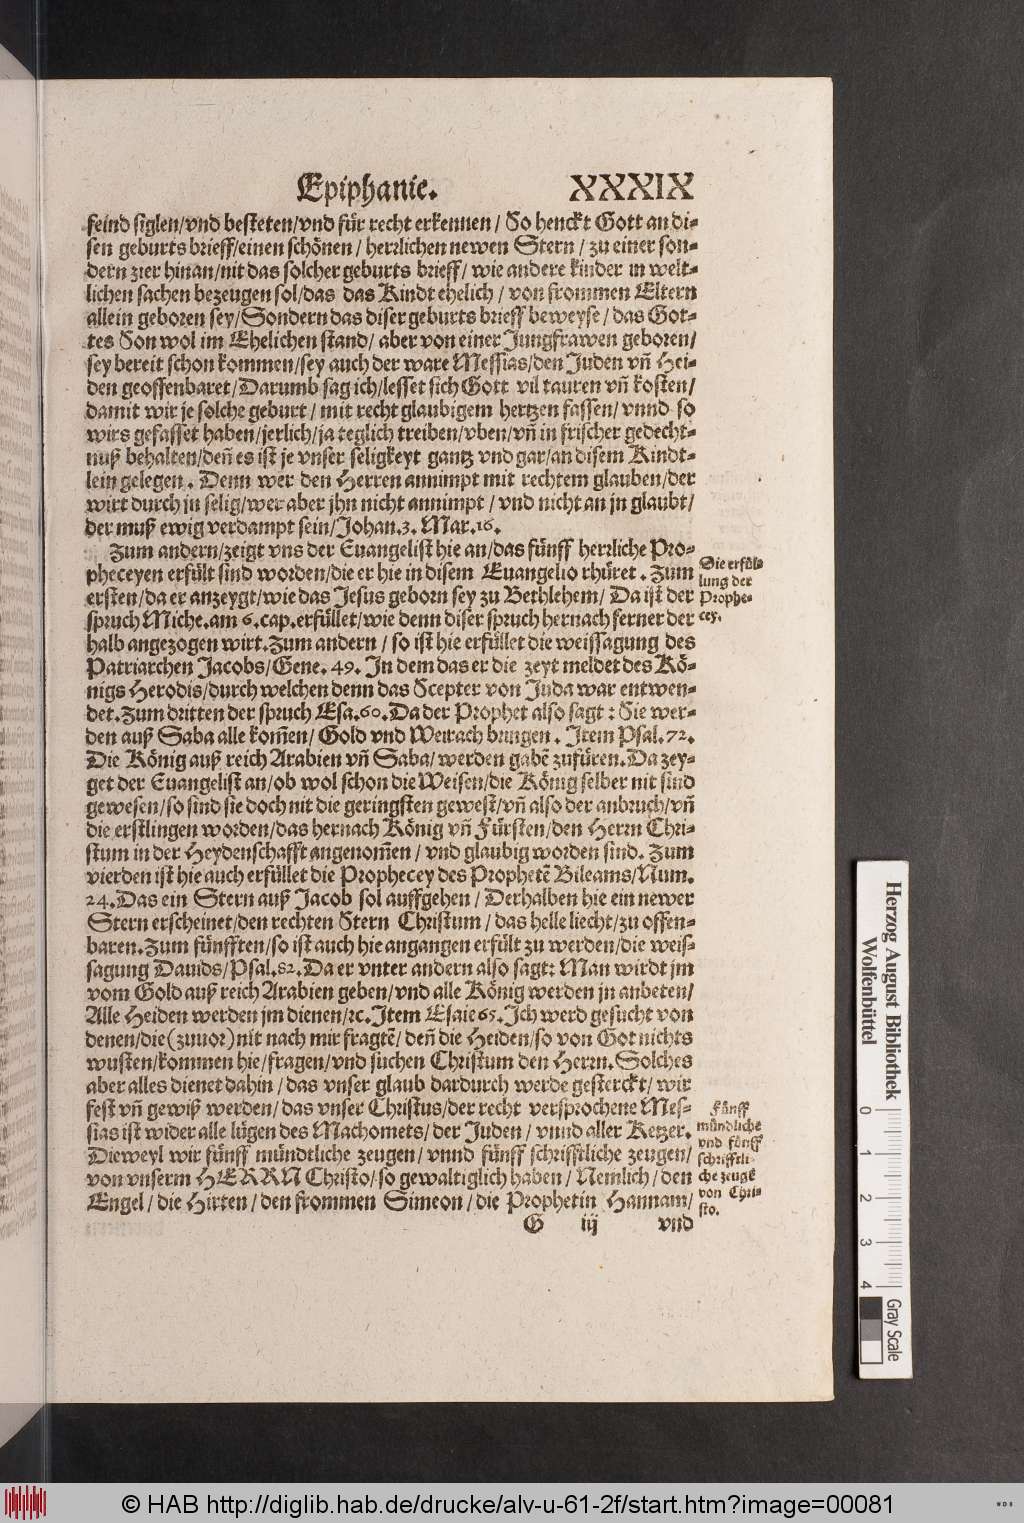 Epiphanie. XXXIX
feind siglen/vnd besteten/vnd für recht erkennen / So henckt Gott an di-
sen geburts brieff/einen schönen / herrlichen newen Stern / zu einer son-
dern zier hinan/nit das solcher geburts brieff/ wie andere kinder in welt-
lichen sachen bezeugen sol/das das Kindt ehelich / von frommen Eltern
allein geboren sey/Sondern das diser geburts brieff beweyse / das Got-
tes Son wol im Ehelichen stand/ aber von einer Jungfrawen geboren/
sey bereit schon kommen/sey auch der ware Messias/den Juden vñ Hei-
den geoffenbaret/Darumb sag ich/lesset sich Gott vil tauren vñ kosten/
damit wir je solche geburt / mit recht glaubigem hertzen fassen/ vnnd so
wirs gefasset haben/jerlich/ja teglich treiben/vben/vñ in frischer gedecht-
nuß behalten/deñ es ist je vnser seligkeyt gantz vnd gar/an disem Kindt-
lein gelegen. Denn wer den Herren annimpt mit rechtem glauben/der
wirt durch jn selig/wer aber jhn nicht annimpt / vnd nicht an jn glaubt/
der muß ewig verdampt sein/Johan.3. Mar.16.
Zum andern/zeigt vns der Euangelist hie an/das fünff herrliche Pro-
pheceyen erfült sind worden/die er hie in disem Euangelio rhüret. Zum
ersten/da er anzeygt/wie das Jesus geborn sey zu Bethlehem/ Da ist der
spruch Miche.am 6.cap.erfüllet/wie denn diser spruch hernach ferner der
halb angezogen wirt.Zum andern / so ist hie erfüllet die weissagung des
Patriarchen Jacobs/Gene. 49. In dem das er die zeyt meldet des Kö-
nigs Herodis/durch welchen denn das Scepter von Juda war entwen-
det.Zum dritten der spruch Esa.60.Da der Prophet also sagt : Sie wer-
den auß Saba alle kom̃en/ Gold vnd Weirach bringen. Item Psal.72.
Die König auß reich Arabien vñ Saba/ werden gabẽ zufüren.Da zey-
get der Euangelist an/ob wol schon die Weisen/die König selber nit sind
gewesen/so sind sie doch nit die geringsten gewest/vñ also der anbruch/vñ
die erstlingen worden/das hernach König vñ Fürsten/den Herrn Chri-
stum in der Heydenschafft angenom̃en / vnd glaubig worden sind. Zum
vierden ist hie auch erfüllet die Prophecey des Prophetẽ Bileams/Num.
24.Das ein Stern auß Jacob sol auffgehen / Derhalben hie ein newer
Stern erscheinet/den rechten Stern Christum / das helle liecht/zu offen-
baren.Zum fünfften/so ist auch hie angangen erfült zu werden/die weis-
sagung Dauids/Psal.82.Da er vnter andern also sagt: Man wirdt jm
vom Gold auß reich Arabien geben/vnd alle König werden jn anbeten/
Alle Heiden werden jm dienen/ꝛc.Item Esaie 65.Ich werd gesucht von
denen/die(zuuor)nit nach mir fragtẽ/ deñ die Heiden/so von Got nichts
wusten/kommen hie/fragen/vnd suchen Christum den Herrn.Solches
aber alles dienet dahin / das vnser glaub dardurch werde gesterckt/ wir
fest vñ gewiß werden/das vnser Christus/der recht versprochene Mes-
sias ist wider alle lügen des Machomets/der Juden / vnnd aller Ketzer.
Dieweyl wir fünff mündtliche zeugen/ vnnd fünff schrifftliche zeugen/
von vnserm HERRN Christo/so gewaltiglich haben / Nemlich / den
Engel / die Hirten / den frommen Simeon / die Prophetin Hannam/
G iij vnd
Die erfül-
lung der
Prophe-
cey.
Fünff
mündliche
vnd fünff
schrifftli-
che zeugẽ
von Chri-
sto.
Herzog August Bibliothek
Wolfenbüttel
0 1 2 3 4
Gray Scale
© HAB http://diglib.hab.de/drucke/alv-u-61-2f/start.htm?image=00081